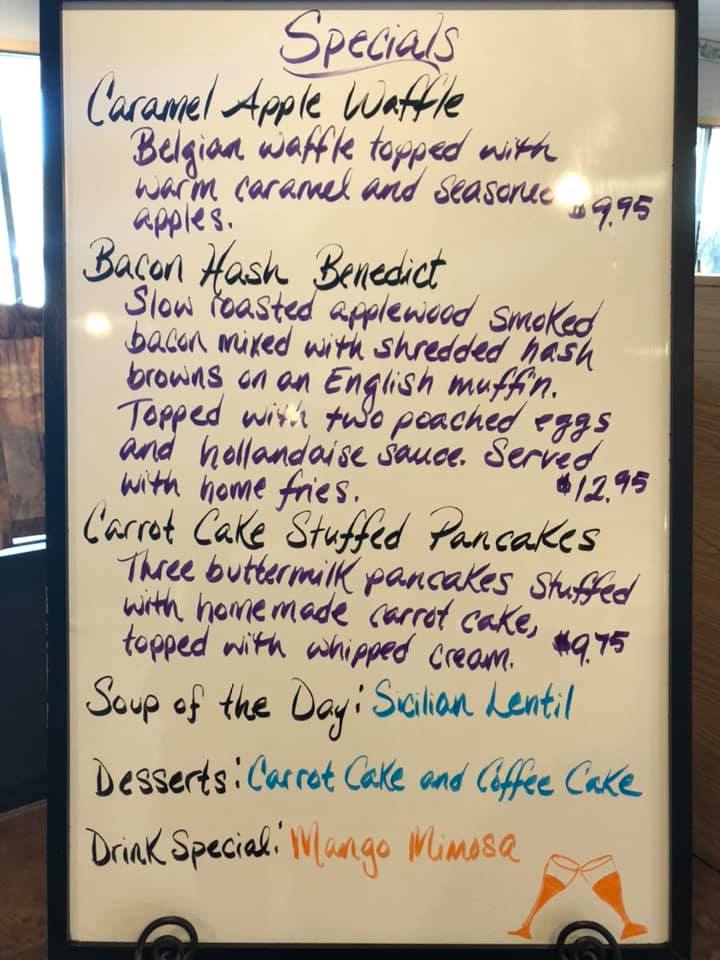 Specials
Caramel Apple Waffle
Belgian waffle topped with
warm caramel and seasoned $9.95
apples.
Bacon Hash Benedict
Slow roasted applewood smoked
bacon mixed with shredded hash
browns on an English muffin.
Topped with two poached eggs
and hollandaise sauce. Served
with home fries. $12.95
Carrot Cake Stuffed Pancakes
Three buttermilk pancakes stuffed
with homemade carrot cake,
topped with whipped cream. $9.75
Soup of the Day: Sicilian Lentil
Desserts: Carrot Cake and Coffee Cake
Drink Special: Mango Mimosa